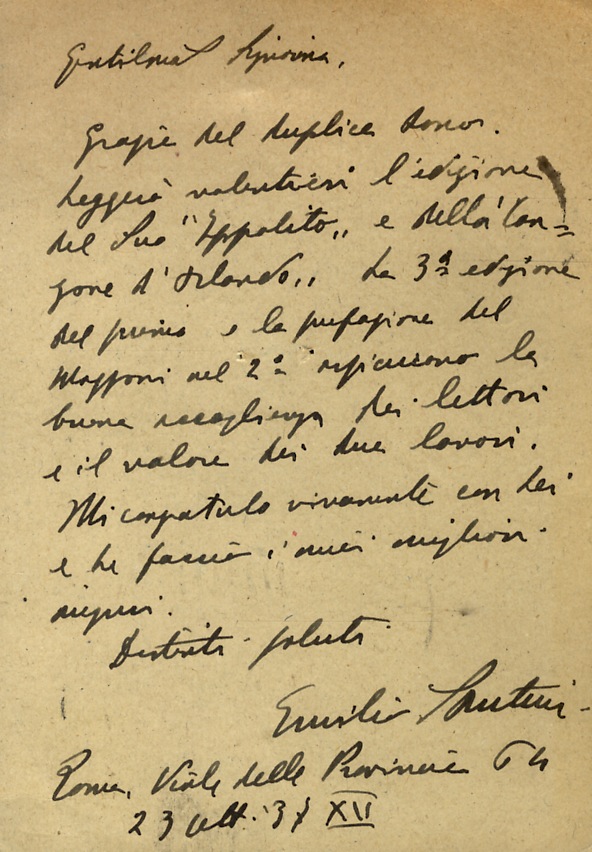 Gentilma Signorina,
Grazie del duplice dono.
Leggerò volentieri l'edizione
del Suo "Ippolito„ e della "Can=
zone d'Orlando„. La 3ª edizione
del primo e la prefazione del
Mazzoni nel 2º assicurano la
buona accoglienza dei lettori
e il valore dei due lavori.
Mi congratulo vivamente con Lei
e Le faccio i miei migliori
auguri.
Distinti saluti
Emilio Santini
Roma, Viale delle Provincie
23 ott. 37 XV